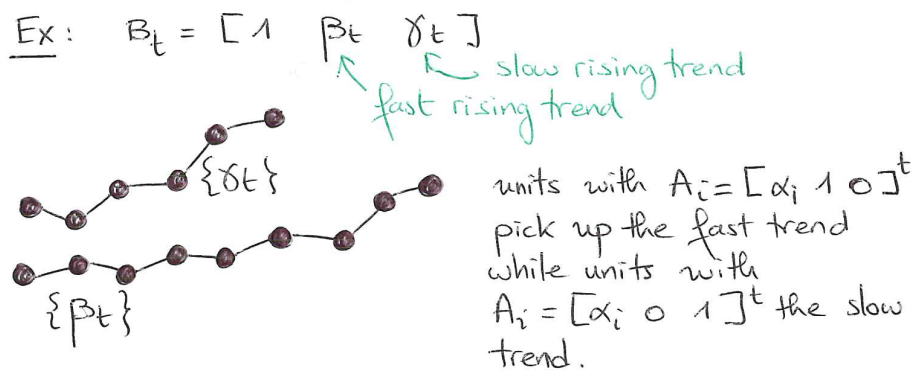 Ex: Bₜ = [1 βₜ γₜ]
slow rising trend
fast rising trend
{γₜ}
{βₜ}
units with Aᵢ = [αᵢ 1 0]ᵗ
pick up the fast trend
while units with
Aᵢ = [αᵢ 0 1]ᵗ the slow
trend.